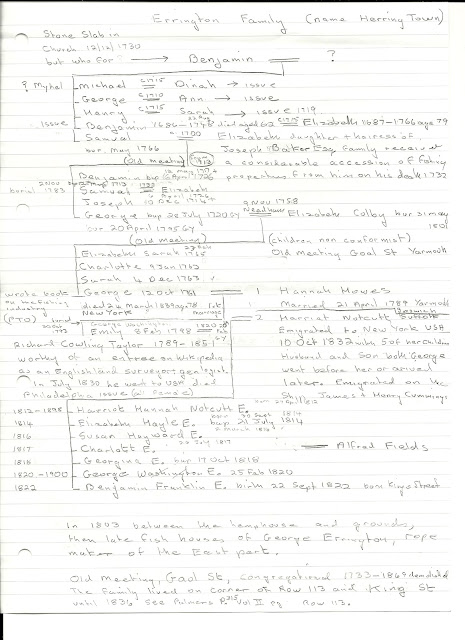 Errington Family (name Herring Town)
Stone Slab in
Church 12/12/1730
but who for → Benjamin = ?
? Myhel Michael c1715 = Dinah → issue
George c1710 = Ann → issue
Henry c1715 = Sarah → issue 1719
Issue Benjamin 1686-17 died aged 63 c1715 = Elizabeth 1687-1766 age 79
Samual 1700 Elizabeth daughter + heiress of
bur. May 1766 Joseph Baker Esq family received
(Old meeting) a considerable accession of
properties from him on his death 1732
Benjamin bap
burial 1783 Samual = Elizabeth
Joseph 10 Dec 9 Nov 1758
George bap 20 July 1720 GY Needham Elizabeth Colby bur 31 may
bur 20 April 1795 GY 1801
(Old meeting) (children non conformist)
Elizabeth Sarah 1765 Old Meeting Gaol St Yarmouth
Charlotte 9 Jan 1763
Sarah 4 Dec 1763
wrote book George 12 Oct = 1 Hannah Howes
on the fishing died 24 March 1839 age 78 1st marriage Married 21 April 1789 Yarmouth
industry New York 2 Harriet Notcutt Ipswich Suffolk
(PTO) George Washington
Emily 8 Feb 1798 = Emigrated to New York USA
Richard Cowling Taylor 1789-1851 10 Oct 1832 with 5 of her children
worthy of an entree on Wikipedia Husband and Son both George
as an English land surveyor + geologist went before her or arrived
in July 1830 he went to USA died later. Emigrated on the
Philadelphia issue (all female) Ship James + Henry Cummings
1812-1898 Harriot Hannah Notcutt E.
1814 Elizabeth Hayle E. born 30 Sept 1814 bap 21 July 1814
1816 Susan Hayward E.
1817 Charlott E. July 1817 = Alfred Fields
1818 Georgina E. bap 17 Oct 1818
1820-1900 George Washington E. 25 Feb 1820
1822 Benjamin Franklin E. birth 22 Sept 1822 born King Street
In 1803 between the hemphouse and grounds,
then late fish houses of George Errington, rope
maker of the East part.
Old Meeting, Gaol St, Congregational 1733-1869 demolished
The family lived on corner of Row 113 and King St
until 1836 See Palmers P. 315 Vol II pg Row 113.